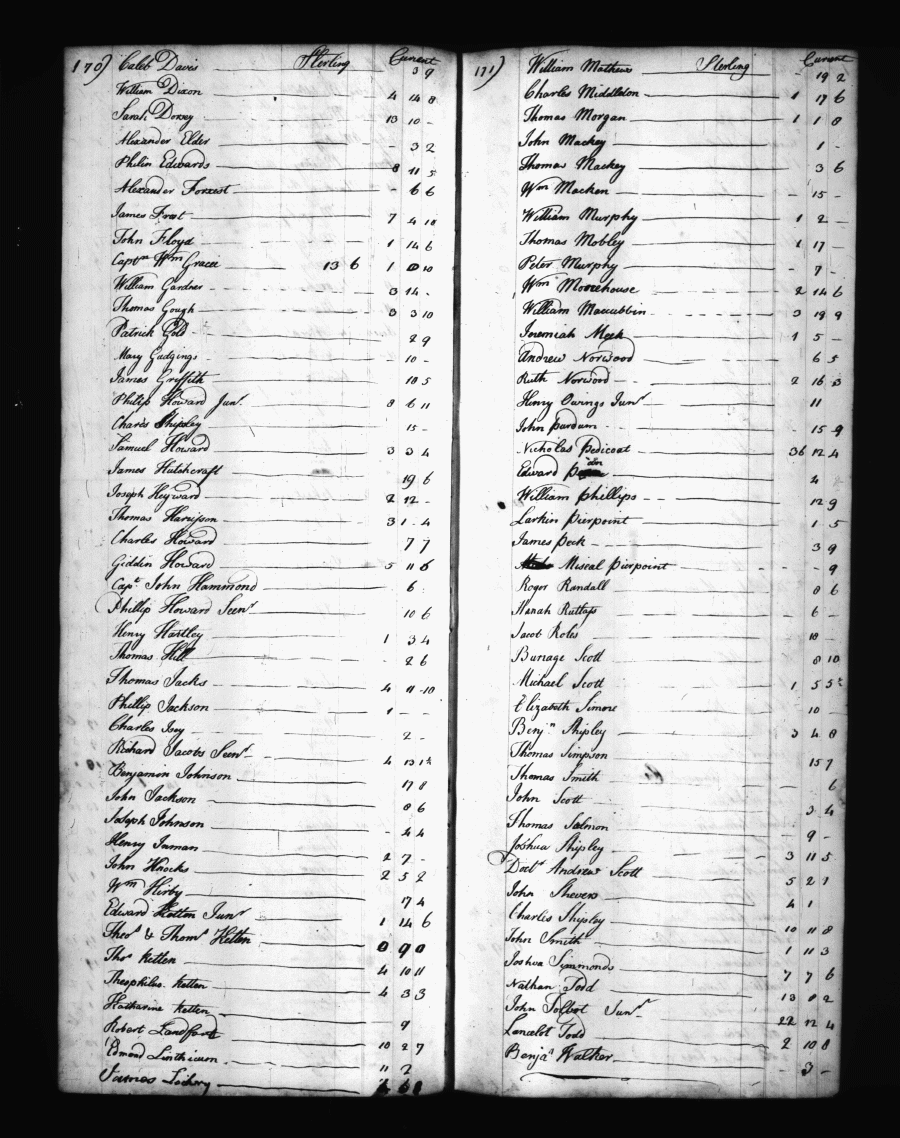 170) Caleb Davis Sterling Current 3 9
William Dixon 4 14 8
Sarah Dorsey 13 10 -
Alexander Elder - 3 2
Philip Edwards 8 11 5
Alexander Forrest - 6 6
James Frost 7 4 10
John Floyd 1 14 6
Captn Wm Grace 13 6 1 0 10
William Gardner 3 14 -
Thomas Gough 3 3 10
Patrick Gold 2 9
Mary Gadgings - 10 -
James Griffith 18 5
Philip Howard Junr 8 6 11
Charles Shipley 15 -
Samuel Howard 3 3 4
James Hutchcraft 19 6
Joseph Heyward 2 12 -
Thomas Harrisson 3 1 - 4
Charles Howard 7 7
Giddin Howard 5 11 6
Capt John Hammond 6
Phillip Howard Seenr 10 6
Henry Hartley 1 3 4
Thomas Hill - 2 6
Thomas Jacks 4 11 10
Phillip Jackson 1 - -
Charles Isey 2 -
Richard Jacobs Seenr 4 13 1½
Benjamin Johnson 17 8
John Jackson 8 6
Joseph Johnson - 4 4
Henry Inman 2 7 -
John Knocks 2 5 2
Wm Kirby 17 4
Edward Ketten Junr 1 14 6
Theos & Thoms Ketten 0 9 0
Thos Ketten 4 10 11
Theophilus Ketten 4 3 3
Katharine Ketten
Robert Landfort 9
Edmond Linthicum 10 2 7
James 11 2
171) William Mathews Sterling Current - 19 2
Charles Middleton 1 17 6
Thomas Morgan 1 1 8
John Mackey 1 -
Thomas Mackey 3 6
Wm Macken - 15 -
William Murphy 1 2 -
Thomas Mobley 1 17 -
Peter Murphy - 7 -
Wm Moorehouse 2 14 6
William Maccubbin 3 19 9
Jeremiah Meek 1 5 -
Andrew Norwood 6 5
Ruth Norwood 2 16 3
Henry Owings Junr 11
John Purdum - 15 9
Nicholas Pedicoat 36 12 4
Edward 4
William Phillips 12 9
Larkin Pierpoint 1 5
James Peck 3 9
Miseal Pierpoint - 9
Roger Randall 8 6
Hanah Ruttass - 6 -
Jacob Roles 10 -
Burrage Scott 8 10
Michael Scott 1 5 5½
Elizabeth Simore 10 -
Benjn Shipley 3 4 8
Thomas Simpson 15 7
Thomas Smith 6
John Scott 3 4
Thomas Salmon - 9 -
Joshua Shipley 3 11 5
Doctr Andrew Scott 5 2 1
John Shevers 4 1
Charles Shipley 10 11 8
John Smith 1 11 3
Joshua Simmonds 7 7 6
Nathan Todd 13 8 2
John Talbot Junr 22 12 4
Lancelot Todd 2 10 8
Benja Walker - 3 -